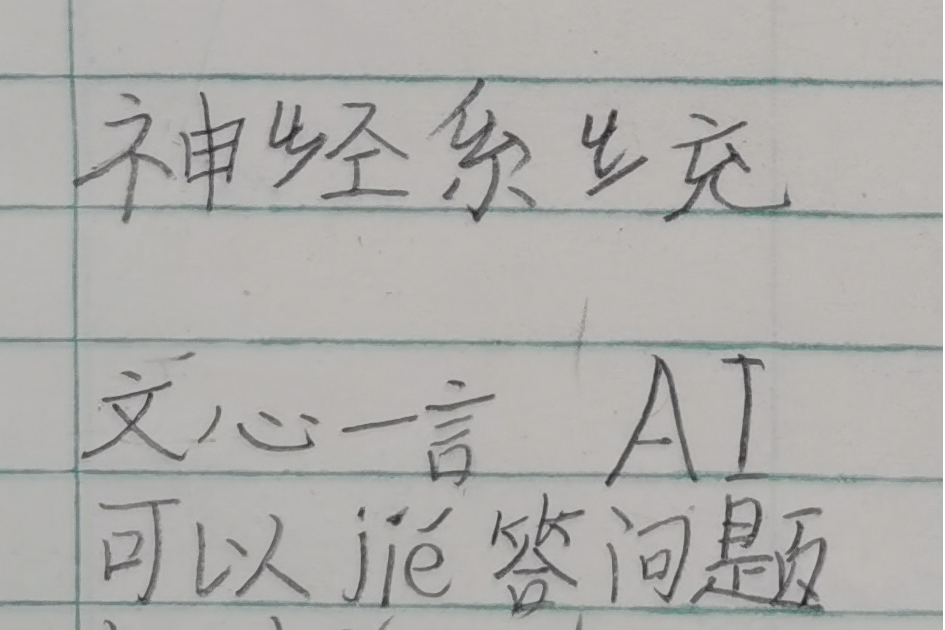 神经系统
文心一言 AI
可以jiě答问题